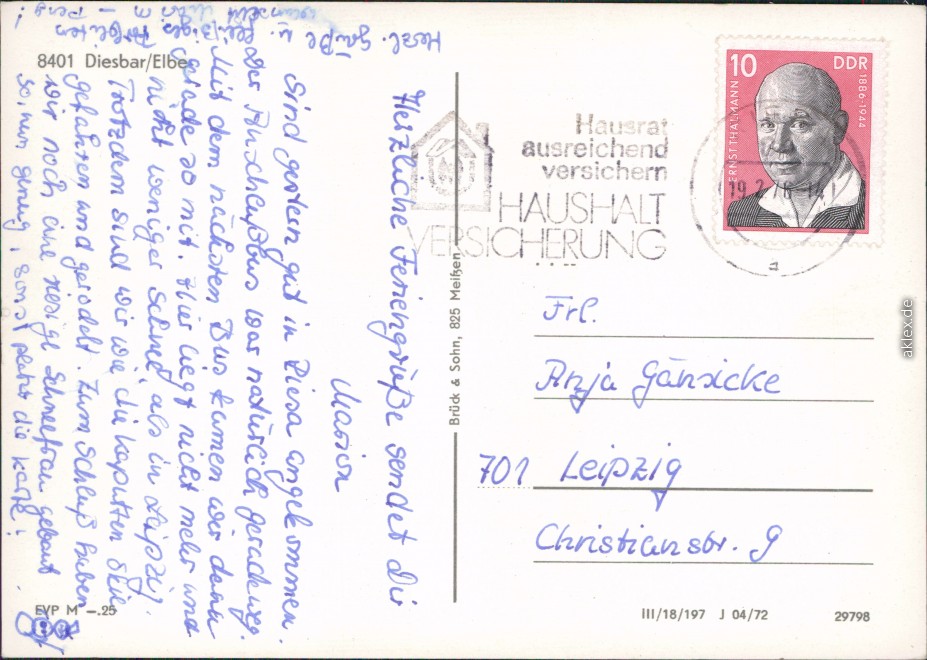 8401 Diesbar/Elbe
Herzliche Feriengrüße sendet Dir
Marion
Sind gestern gut in Riesa angekommen.
Der Anschlußbus war natürlich gerade weg.
Mit dem nächsten Bus kamen wir dann
gerade so mit. Hier liegt nicht mehr und
nicht weniger Schnee, als in Leipzig.
Trotzdem sind wir wie die kaputten Skie
gefahren und gerodelt. Zum Schluß haben
wir noch eine riesige Schneefrau gebaut.
So nun genug, sonst platzt die Karte!
Herzl. Grüße u.
EVP M –.25
Brück & Sohn, 825 Meißen
Hausrat
ausreichend
versichern
HAUSHALT
VERSICHERUNG
10 DDR
ERNST THÄLMANN
1886-1944
Frl.
Anja Gänsicke
701 Leipzig
Christianstr. 9
III/18/197 J 04/72 29798
aklex.de